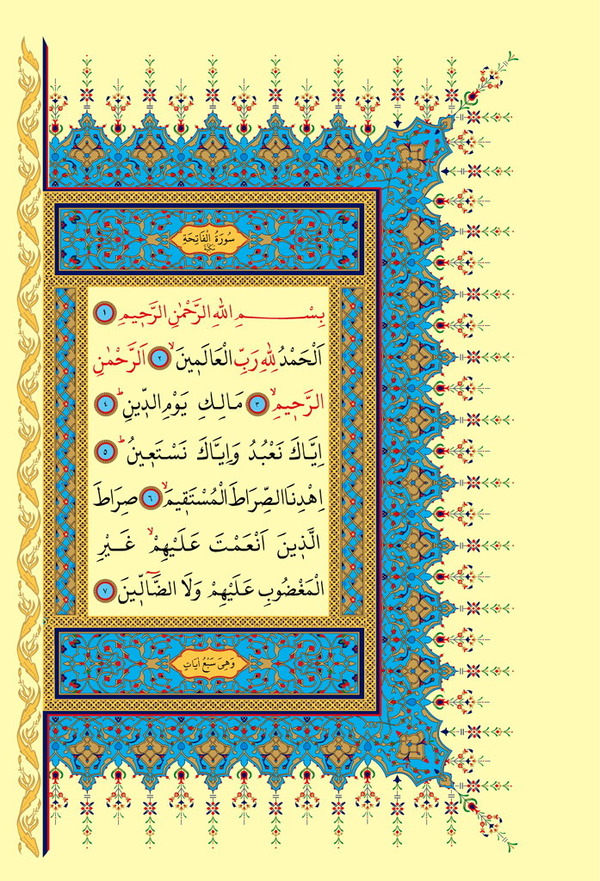 سُورَةُ الْفَاتِحَةِ
مَكِّيَّةٌ
بِسْمِ اللّٰهِ الرَّحْمٰنِ الرَّح۪يمِ ١
اَلْحَمْدُ لِلّٰهِ رَبِّ الْعَالَم۪ينَۙ ٢ اَلرَّحْمٰنِ
الرَّح۪يمِۙ ٣ مَالِكِ يَوْمِ الدّ۪ينِۜ ٤
اِيَّاكَ نَعْبُدُ وَاِيَّاكَ نَسْتَع۪ينُۜ ٥
اِهْدِنَا الصِّرَاطَ الْمُسْتَق۪يمَۙ ٦ صِرَاطَ
الَّذ۪ينَ اَنْعَمْتَ عَلَيْهِمْۙ غَيْرِ
الْمَغْضُوبِ عَلَيْهِمْ وَلَا الضَّٓالّ۪ينَ ٧
وَهِىَ سَبْعُ اٰيَاتٍ